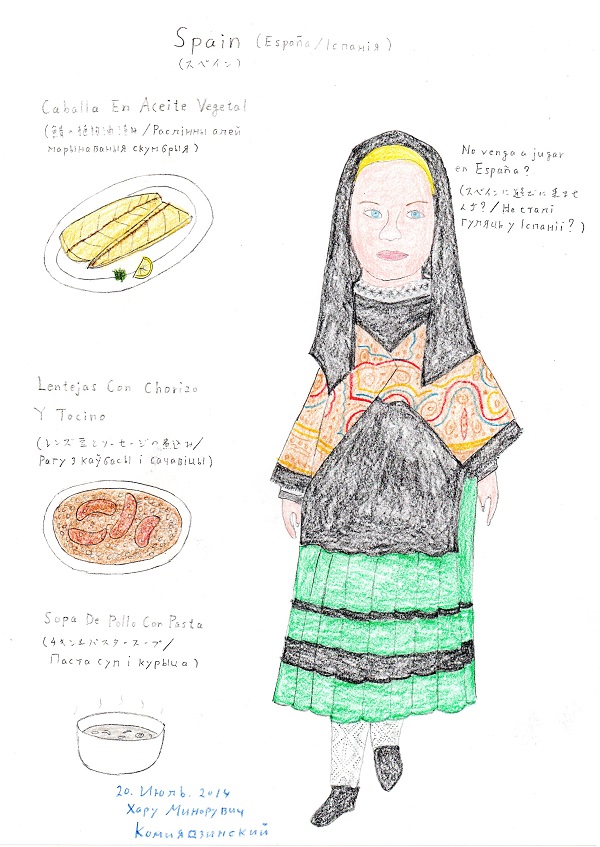 Spain (España/Іспанія)
(スペイン)
Caballa En Aceite Vegetal
(鯖の植物油漬け/Раслінны алей
марынаваныя скумбрыя)
No venga a jugar
en España?
(スペインに遊びに来ませ
んか?/Не сталі
гуляць у Іспаніі?)
Lentejas Con Chorizo
Y Tocino
(レンズ豆とソーセージの煮込み/
Рагу з каўбасы і сачавіцы)
Sopa De Pollo Con Pasta
(チキン&パスタースープ/
Паста суп і курыца)
20. Июль. 2014
Хару Минорувич